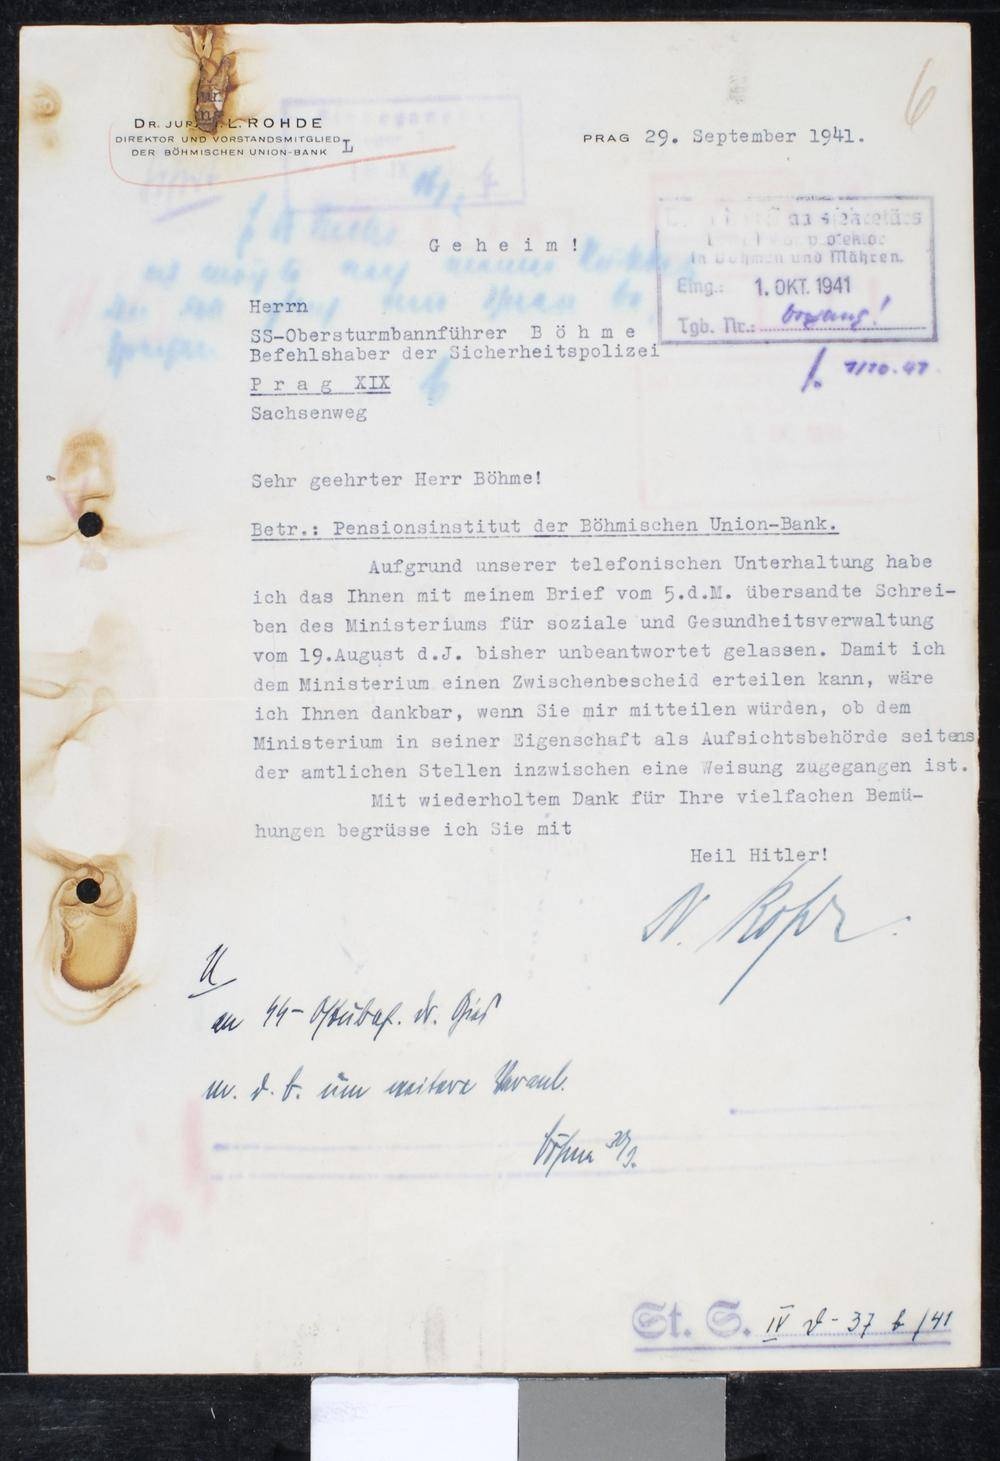 6
DR. JUR. L. ROHDE
DIREKTOR UND VORSTANDSMITGLIED
DER BÖHMISCHEN UNION-BANK
L
PRAG 29. September 1941.
G e h e i m !
in Böhmen und Mähren.
Eing.: 1. OKT. 1941
Tgb. Nr.:
1/10.41.
Herrn
SS-Obersturmbannführer B ö h m e
Befehlshaber der Sicherheitspolizei
P r a g XIX
Sachsenweg
Sehr geehrter Herr Böhme!
Betr.: Pensionsinstitut der Böhmischen Union-Bank.
Aufgrund unserer telefonischen Unterhaltung habe
ich das Ihnen mit meinem Brief vom 5.d.M. übersandte Schrei-
ben des Ministeriums für soziale und Gesundheitsverwaltung
vom 19.August d.J. bisher unbeantwortet gelassen. Damit ich
dem Ministerium einen Zwischenbescheid erteilen kann, wäre
ich Ihnen dankbar, wenn Sie mir mitteilen würden, ob dem
Ministerium in seiner Eigenschaft als Aufsichtsbehörde seitens
der amtlichen Stellen inzwischen eine Weisung zugegangen ist.
Mit wiederholtem Dank für Ihre vielfachen Bemü-
hungen begrüsse ich Sie mit
Heil Hitler!
U
an SS-Ostubaf. Dr. Gies
m. d. B. um weitere Veranl.
Böhme 30/9.
St. S. IV D - 37 b /41